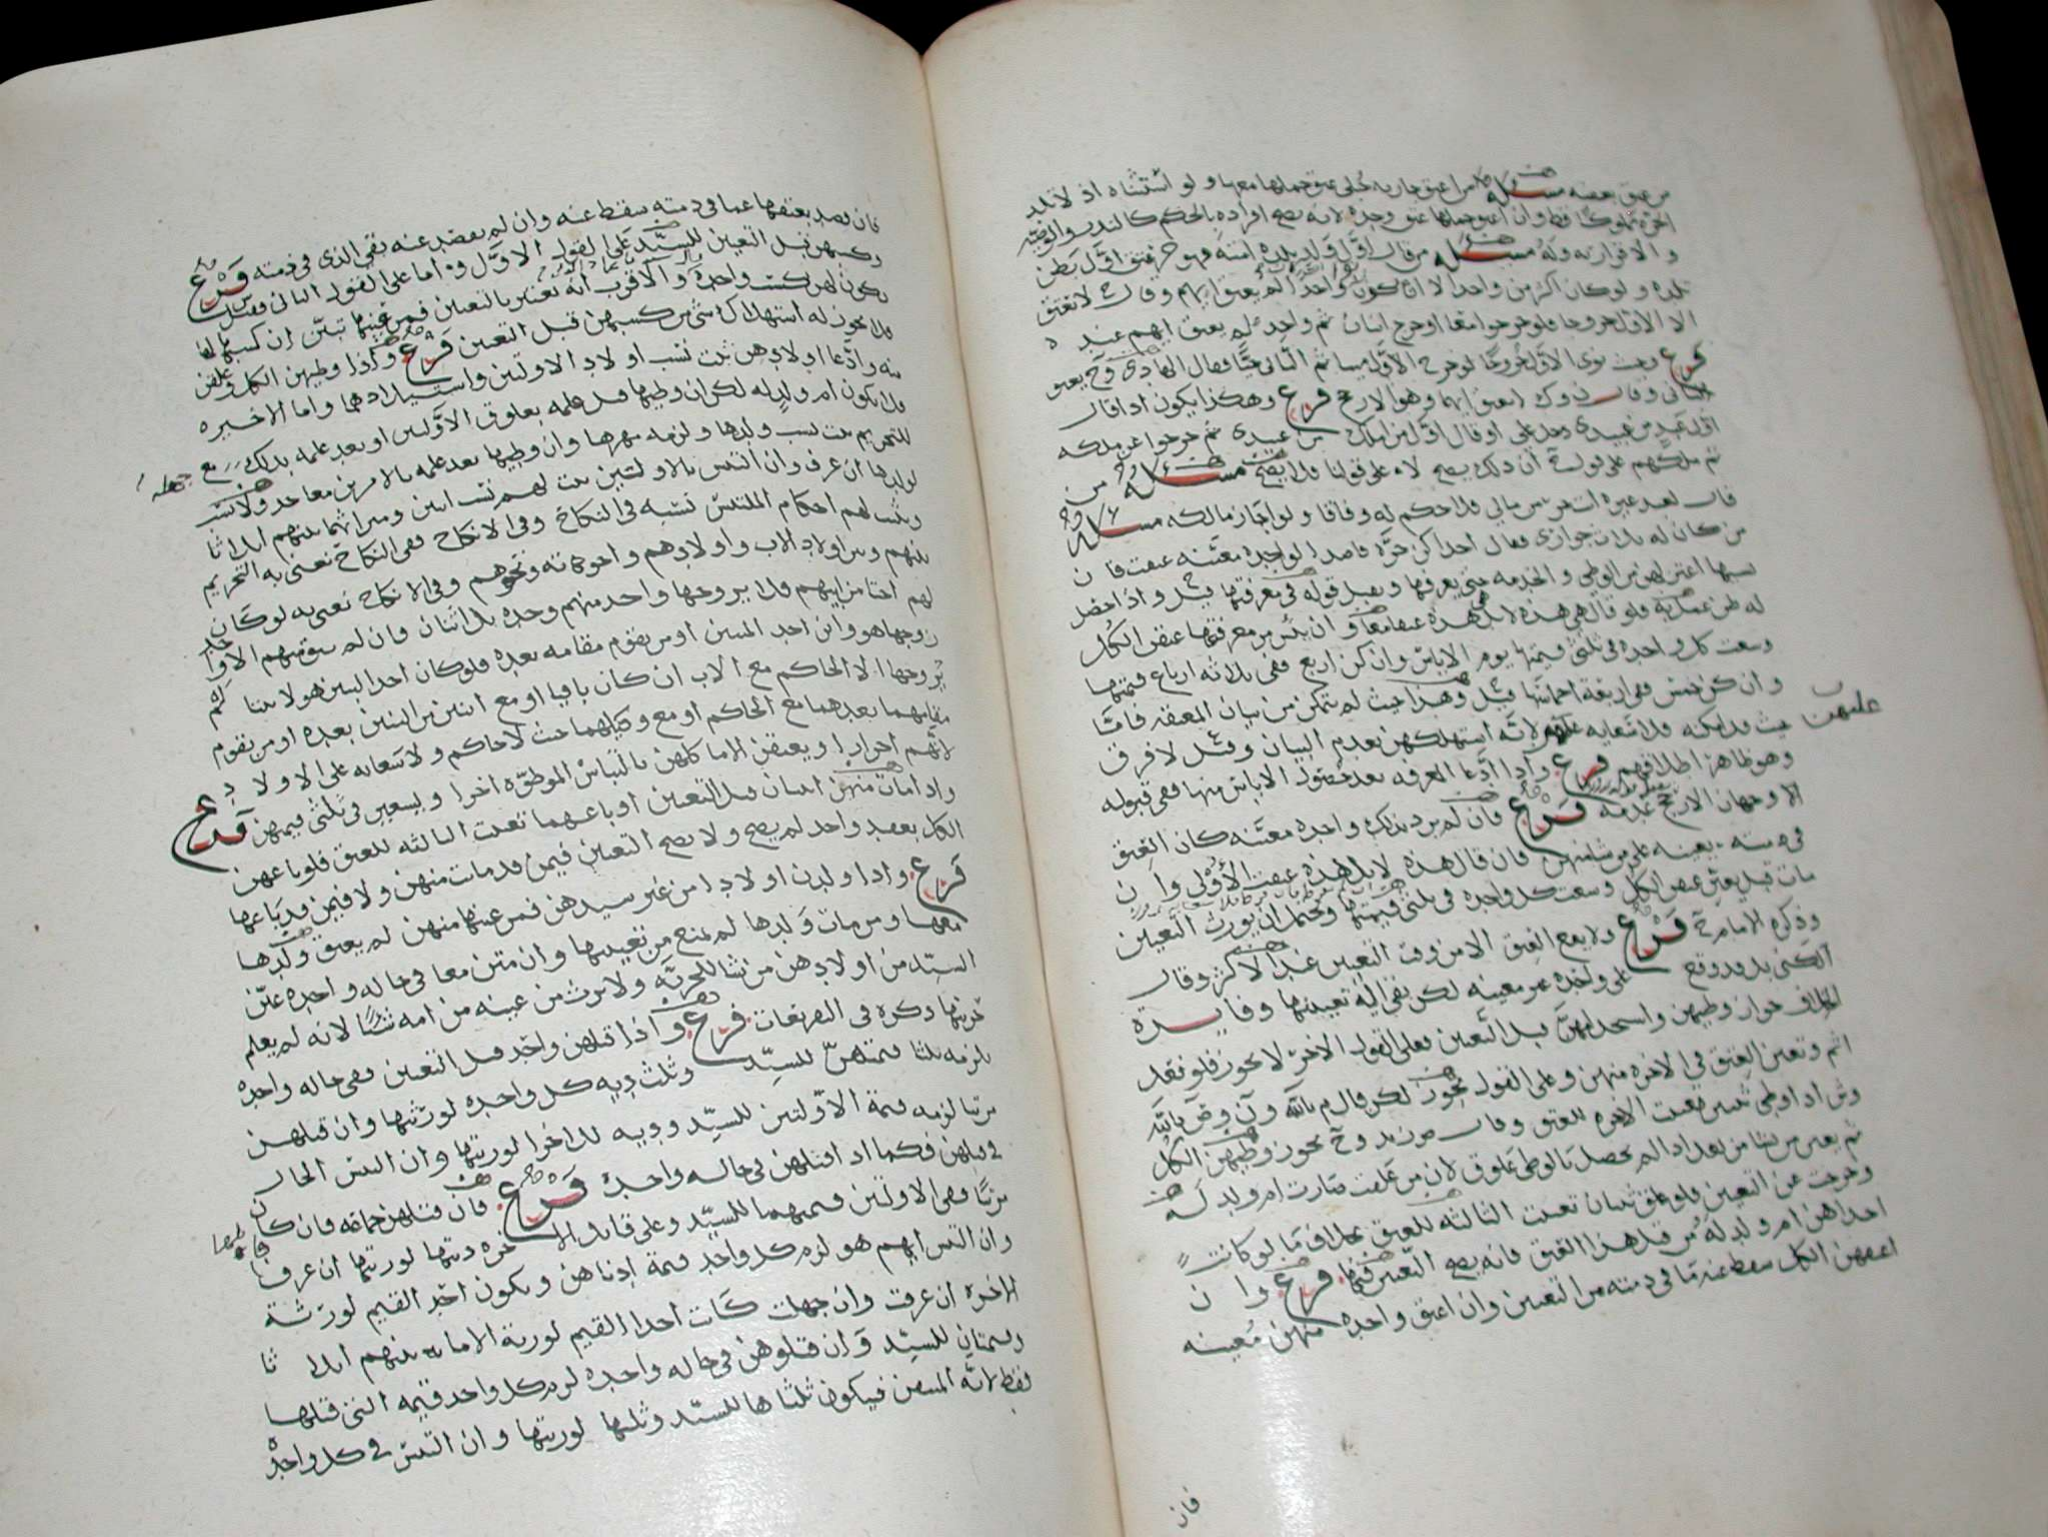 من عتق بعضه مسئلة من اعتق جاريه حبلى عتق حملها معها ولو استثناه اذ لا تلد
الحرة مملوكا قط وان اعتق حملها عتق وحده لانه يصح افراده بالحكم كالتدبير والوصية
والاقرار به وله مسئلة من قال اول ولد تلده امته فهو حر عتق اول بطن
تلده ولو كان اكثر من واحد الا ان يكون واحدا لم يعتق ايهم وقال لا تعتق
الا الاول خروجا فلو خرجوا معا او خرج اثنان ثم واحد لم يعتق ايهم عنده
فرع وحيث نوى الاول خروجا لو خرج الاول ميتا ثم الثاني حيا فقال الهادي وح يعتق
الثاني وقال لا يعتق ايهما وهو الارجح فرع وهكذا يكون اذا قال
اول عبد من عبيدي على او قال اول من املك من عبيدي ثم خرجوا عن ملكه
ثم ملكهم على قول ان ذلك يصح لا على قولنا فلا يصح مسئلة من
قال لعبد غيره انت حر من مالي فلا حكم له وفاقا ولو اجاز مالكه مسئلة
من كان له ثلاث جواري فقال احداكن حرة قاصدا لواحدة معينه عتقت فان
نسيها اعتزلهن من الوطي والخدمه حتى يعرفها ويقبل قوله في معرفتها قيل واذا حصل
له ظن عمل به فلو قال هي هذه لا بل هذه عتقتا معا وان يئس من معرفتها عتق الكل
وسعت كل واحده في ثلثي قيمتها يوم الاياس وان كن اربع ففي ثلاثه ارباع قيمتها
وان كن خمس ففي اربعة اخماسها قيل وهذا حيث لم يتمكن من بيان المعتقه فاما
حيث قد امكنه فلا سعايه عليهن لانه استهلكهن بعدم البيان وقيل لا فرق
عليهن
وهو ظاهر اطلاقهم فرع واذا ادعا المعرفه بعد حصول الاياس منها ففي قبوله
الا وجهان الارجح عدمه فرع فان لم يرد بذلك واحده معينه كان العتق
في ذمته يعينه على من شا منهن فان قال هذه لا بل هذه عتقت الاولى وان
مات قبل يعين عتق الكل وسعت كل واحده في ثلثي قيمتها ويحتمل ان يورث التعيين
وذكره الامام ح فرع ولا يقع العتق الا من وقت التعيين عند الاكثر وقال
الكني بل قد وقع على واحده غير معينه لكن بقي اليه تعيينها وفايدة
الخلاف جواز وطيهن واستخدامهن قبل التعيين فعلى القول الاخر لا يجوز فلو فعل
اثم وتعين العتق في الاخره منهن وعلى القول يجوز لكن قال م بالله
ثم يعين من شا من بعد اذا لم يحصل بالوطي علوق لان من علقت صارت ام ولد له
وخرجت عن التعيين فلو علق ثنتان تعينت الثالثه للعتق بخلاف ما لو كانت
احداهن ام ولد له من قبل هذا العتق فانه يصح التعيين فيها فرع وان
اعتقهن الكل سقط عنه ما في ذمته من التعيين وان اعتق واحده منهن معينه
فان
فان قصد بعتقها عما في ذمته سقط عنه وان لم يقصد عنه بقي الذي في ذمته فرع
وكسبهن قبل التعيين للسيد على القول الاول واما على القول الثاني فقيل
يكون لهن كسب واحده والاقرب انه يعتبر بالتعيين فمن عينها تبين ان كسبها لها
فلا يجوز له استهلاك شي من كسبهن قبل التعيين فرع واذا وطيهن الكل وعلقن
منه وادعا اولادهن ثبت نسب اولاد الاولتين واستيلادهما واما الاخيره
فلا يكون ام ولد له لكن ان وطيها قبل علمه بعلوق الاولتين او بعد علمه بذلك مع جهله
للتحريم ثبت نسب ولدها ولزمه مهرها وان وطيها بعد علمه بالامرين معا حد ولا نسب
لولدها ان عرف وان التبس بالاولتين ثبت لهم نسب ابنين وميراثهما بينهم اثلاثا
ويثبت لهم احكام الملتبس نسبه في النكاح وفي الانكاح ففي النكاح نعني به التحريم
بينهم وبين اولاد الاب واولادهم واخواته ونحوهم وفي الانكاح نعني به لو كان
لهم اختا من ابيهم فلا يزوجها واحد منهم وحده بل اثنان فان لم يبق منهم الا واحد
زوجها هو وابن احد الميتين او من يقوم مقامه بعده فلو كان احد البنين هولا ميتا لم
يزوجها الا الحاكم مع الاب ان كان باقيا او مع اثنين من البنين بعده او من يقوم
مقامهما بعدهما مع الحاكم او مع وكيلهما حيث لا حاكم ولا سعايه على الاولاد
لانهم احرارا ويعتقن الاما كلهن بالتباس الموطوه اخرا ويسعين في ثلثي قيمهن فرع
واذا مات منهن اثنتان قبل التعيين او باعهما تعينت الثالثه للعتق فلو باعهن
الكل بعقد واحد لم يصح ولا يصح التعيين فيمن قد مات منهن ولا فيمن قد باعها
فرع واذا ولدن اولادا من غير سيدهن فمن عينها منهن لم يعتق ولدها
معها ومن مات ولدها لم يمنع من تعيينها وان متن معا في حاله واحده عين
السيد من اولادهن من شا للحريه ولا يرث من عينه من امه شيئا لانه لم يعلم
حريتها ذكره في التفريعات فرع واذا قتلهن واحد قبل التعيين ففي حاله واحده
يلزمه ثلثا قيمتهن للسيد وثلث ديه كل واحده لورثتها وان قتلهن
مرتبا لزمه قيمة الاولتين للسيد وديه للاخرا لورثتها وان التبس الحال
في قتلهن فكما اذا قتلهن في حاله واحده فرع فان قتلهن جماعه فان كان
مرتبا ففي الاولتين قيمتهما للسيد وعلى قاتل الاخره ديتها لورثتها ان عرف قاتلها
وان التبس ايهم هو لزم كل واحد قيمة ادناهن ويكون احد القيم لورثة
الاخره ان عرفت وان جهلت كانت احدا القيم لورثة الاما بينهم اثلاثا
وقيمتان للسيد وان قتلوهن في حاله واحده لزم كل واحد قيمه التي قتلها
فقط لانه المتيقن فيكون ثلثاها للسيد وثلثها لورثتها وان التبس في كل واحده